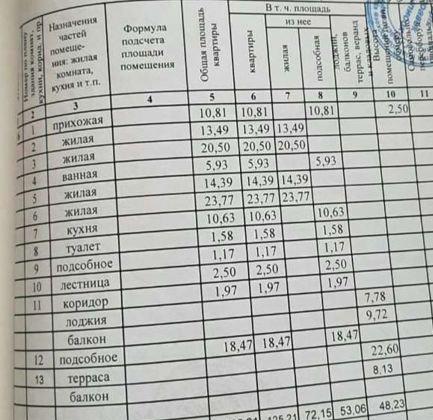 Номер по плану
Назначения
частей
помеще-
ния: жилая
комната,
кухня и т.п.
Формула
подсчета
площади
помещения
Общая площадь
квартиры
В т. ч. площадь
из нее
квартиры
жилая
подсобная
лоджий,
балконов
террас, веранд
Высота
2 3 4 5 6 7 8 9 10 11
1 прихожая 10,81 10,81 10,81 2,50
2 жилая 13,49 13,49 13,49
3 жилая 20,50 20,50 20,50
4 ванная 5,93 5,93 5,93
5 жилая 14,39 14,39 14,39
6 жилая 23,77 23,77 23,77
7 кухня 10,63 10,63 10,63
8 туалет 1,58 1,58 1,58
9 подсобное 1,17 1,17 1,17
10 лестница 2,50 2,50 2,50
11 коридор 1,97 1,97 1,97
лоджия 7,78
балкон 9,72
12 подсобное 18,47 18,47 18,47
13 терраса 22,60
балкон 8,13
72,15 53,06 48,23